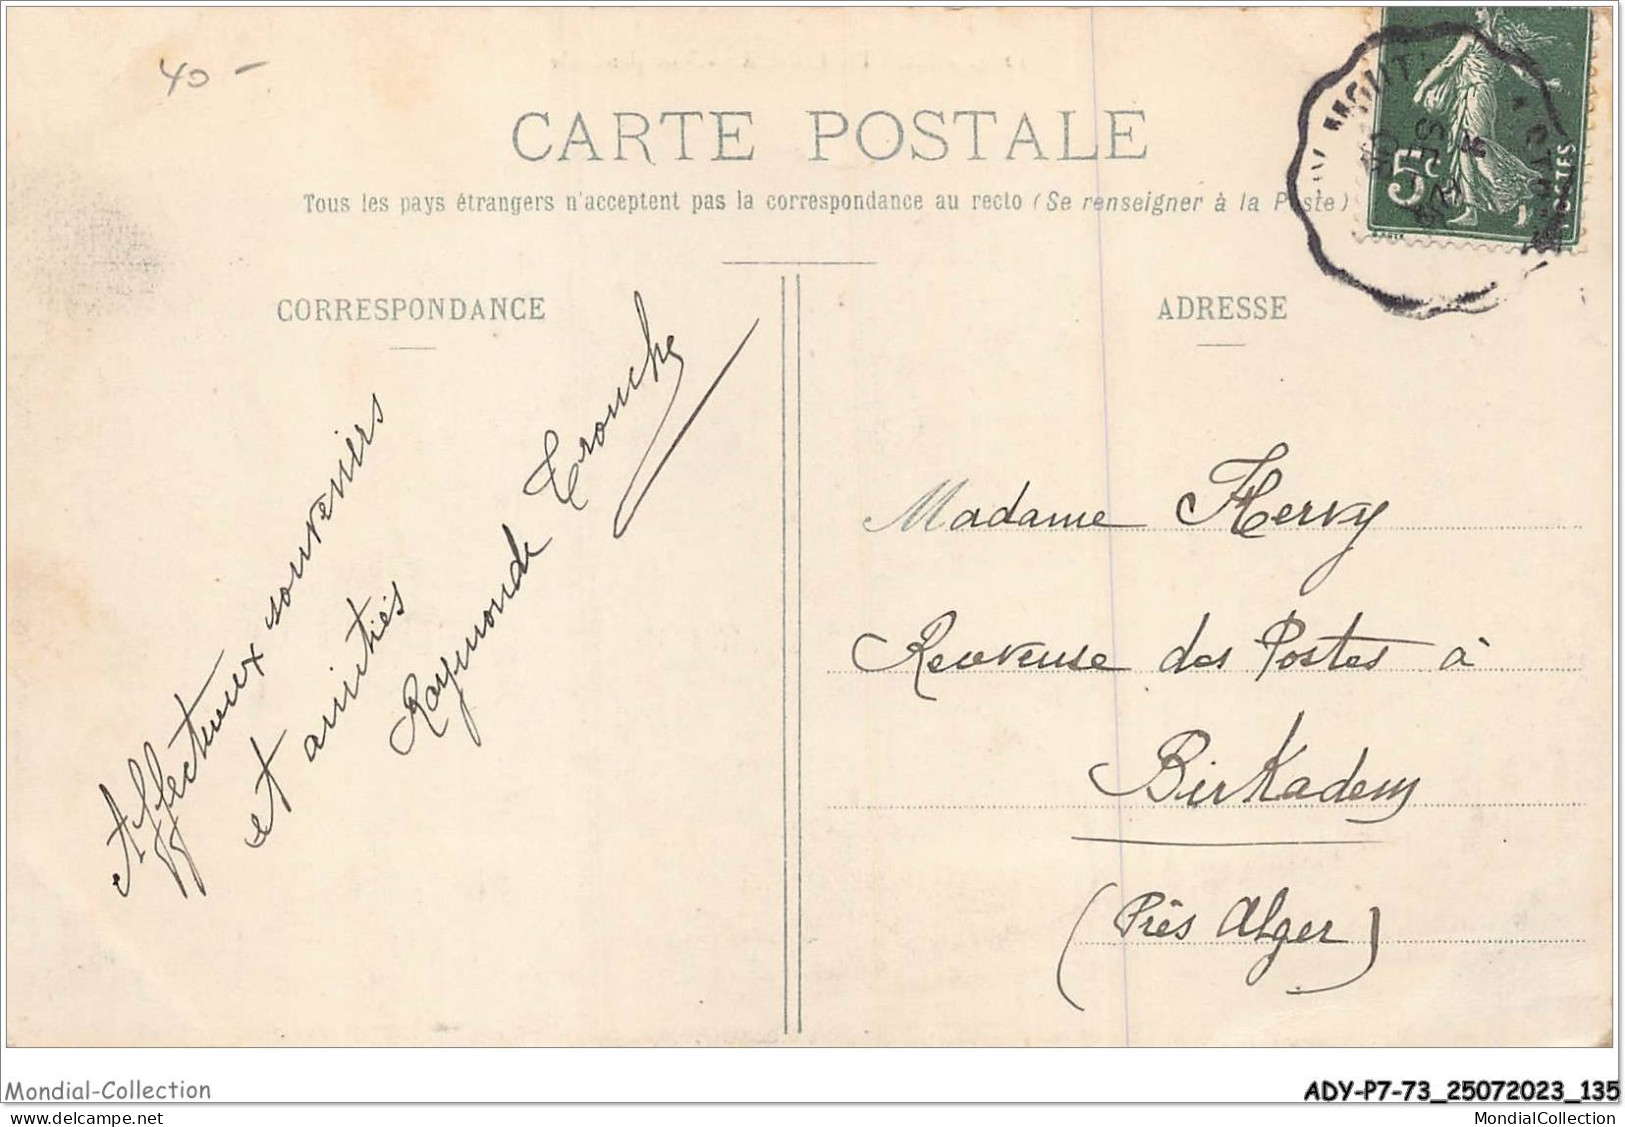 40-
CARTE POSTALE
Tous les pays étrangers n'acceptent pas la correspondance au recto (Se renseigner à la Poste)
CORRESPONDANCE
ADRESSE
5c
POSTES
Affectueux souvenirs
et amitiés
Raymonde Trouche
Madame Hervy
Receveuse des Postes à
Birkadem
(Près Alger)
Mondial-Collection
ADY-P7-73_25072023_135
MondialCollection